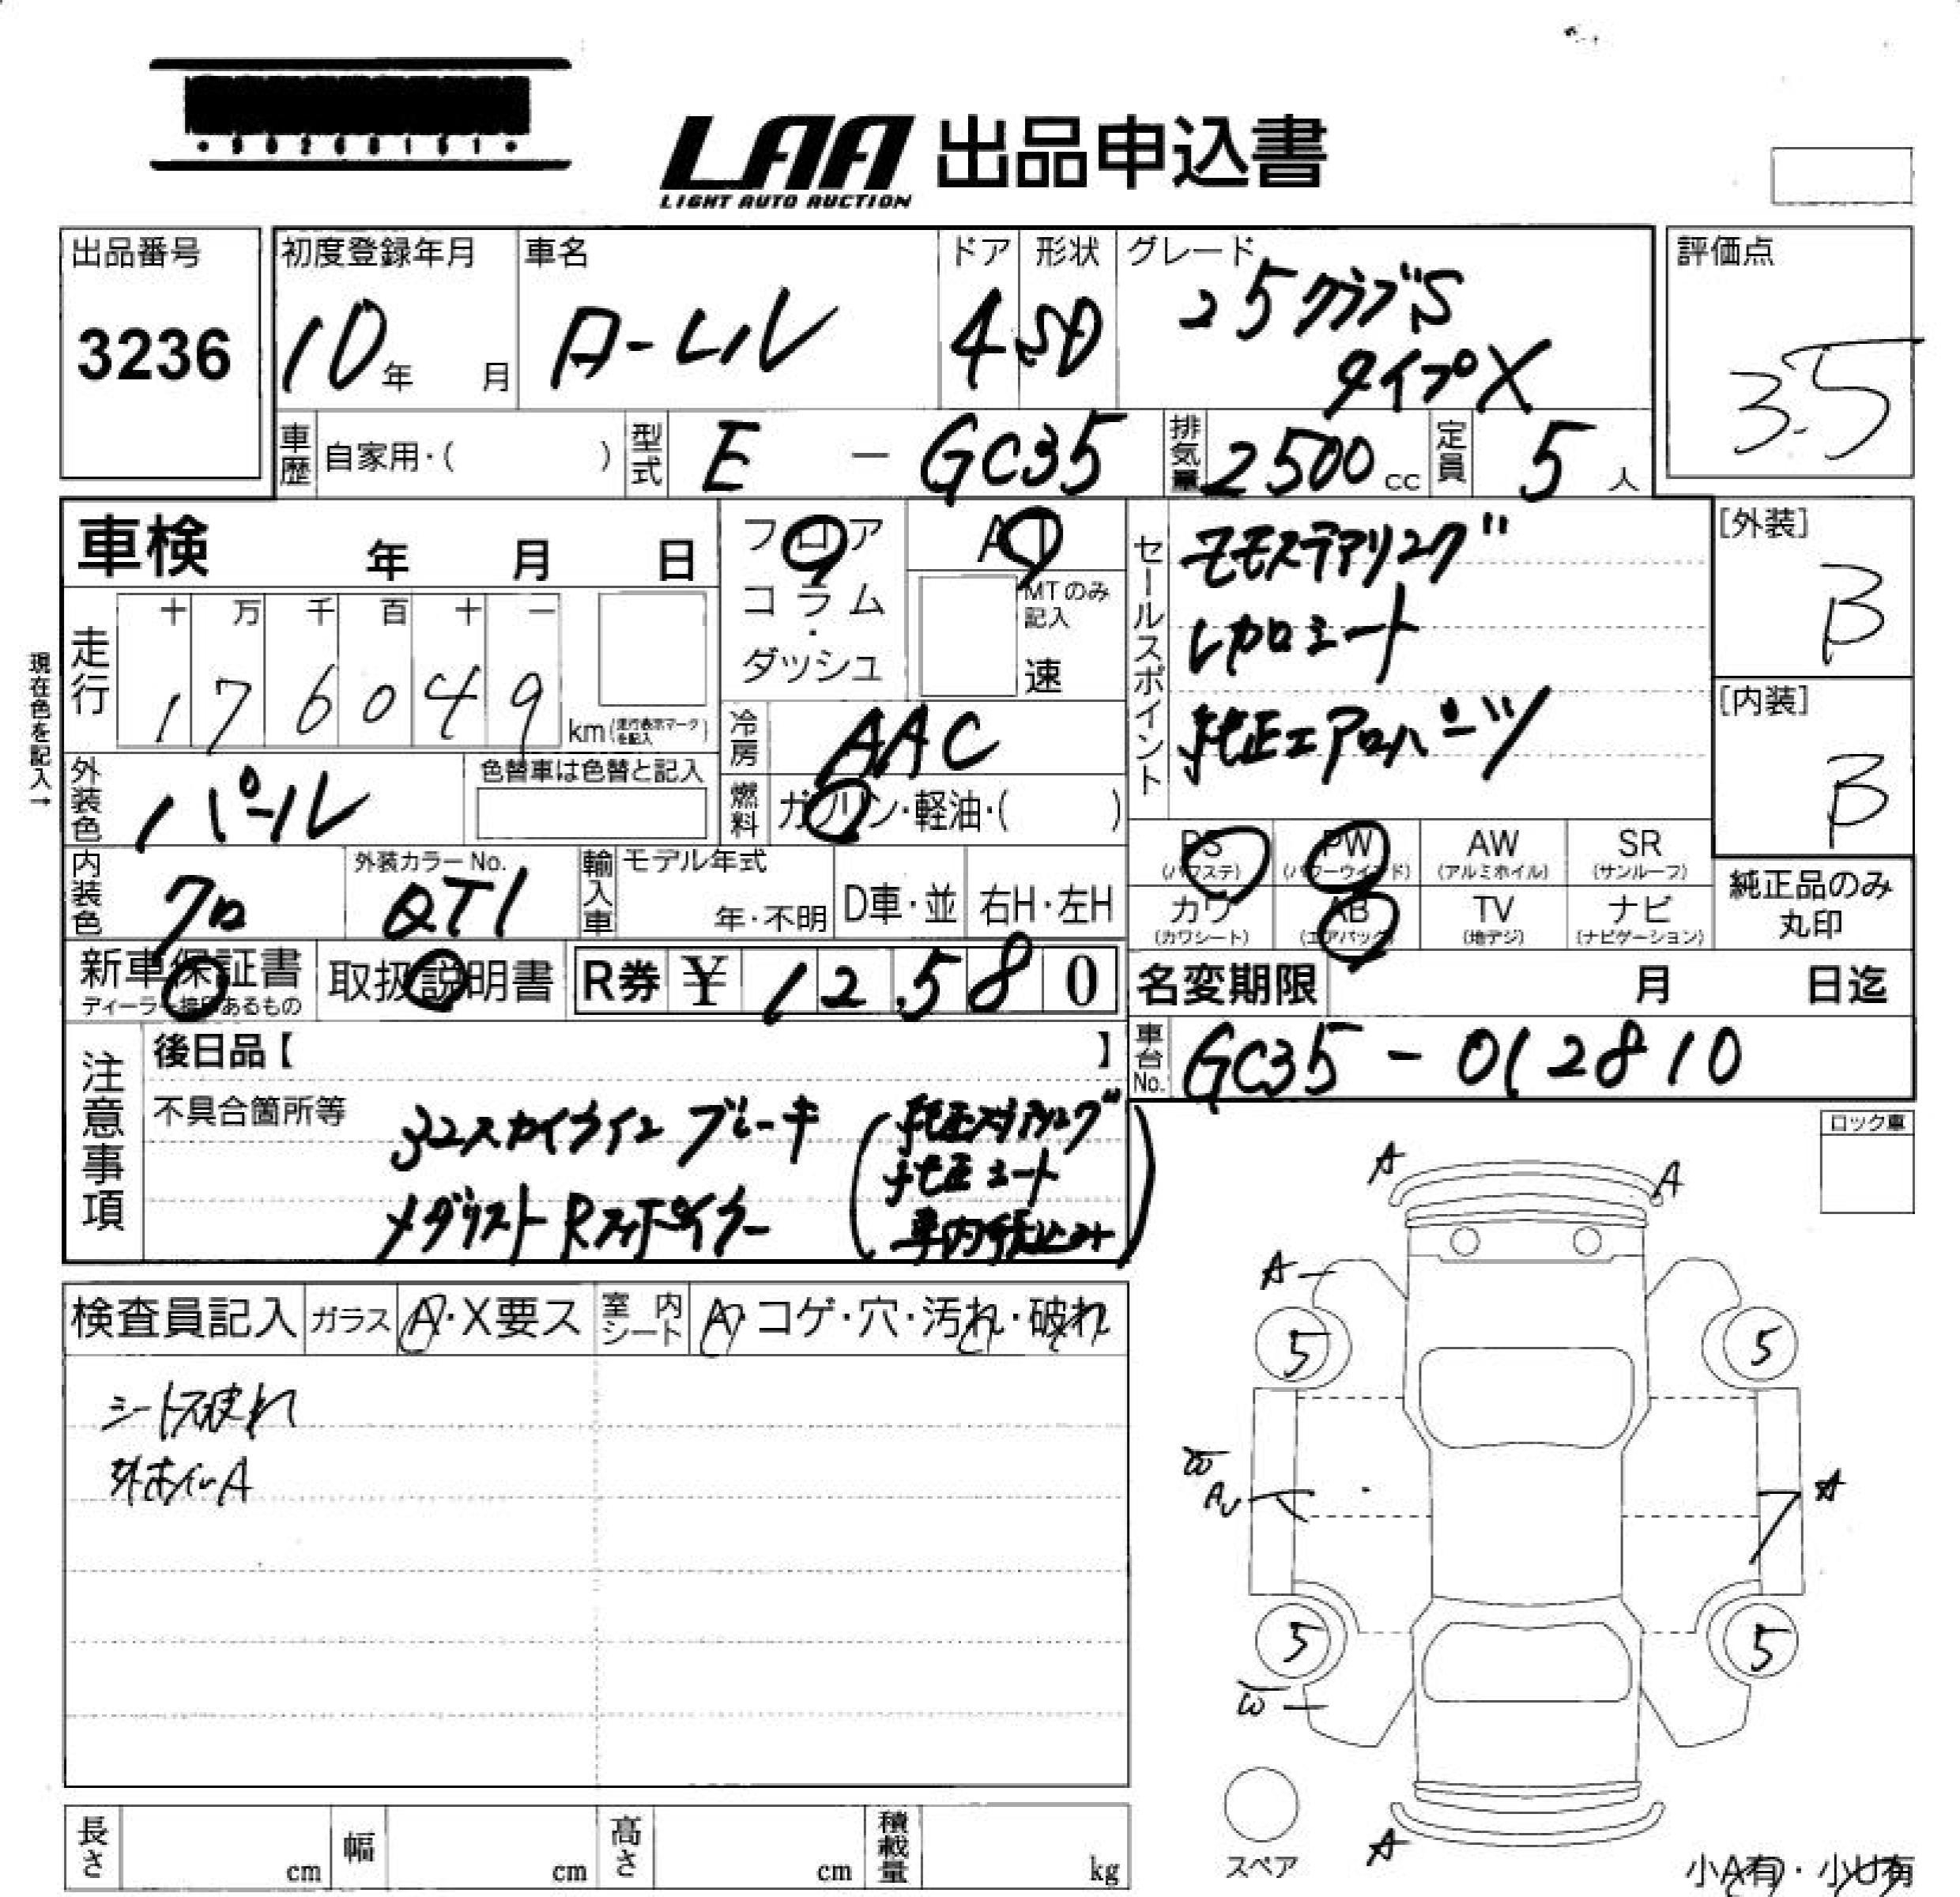 LAA 出品申込書
LIGHT AUTO AUCTION
出品番号
3236
初度登録年月
10年 月
車名
ローレル
ドア
4
形状
SD
グレード
25クラブS
タイプX
評価点
3.5
車歴 自家用・( )
型式 E - GC35
排気量 2500 cc
定員 5 人
車検 年 月 日
フロア
コラム
・
ダッシュ
AT
MTのみ
記入
速
セールスポイント
モモステアリング
レカロシート
純正エアロパーツ
[外装]
B
[内装]
B
現在色を記入→
走行
十 万 千 百 十 一
1 7 6 0 4 9
km(走行表示マークを記入)
冷房 AAC
燃料 ガソリン・軽油・( )
外装色 パール
色替車は色替と記入
内装色 クロ
外装カラーNo.
QT1
輸入車
モデル年式
年・不明
D車・並
右H・左H
PS
(パワステ)
PW
(パワーウインド)
AW
(アルミホイル)
SR
(サンルーフ)
カワ
(カワシート)
AB
(エアバッグ)
TV
(地デジ)
ナビ
(ナビゲーション)
純正品のみ
丸印
新車保証書
ディーラー捺印あるもの
取扱説明書
R券 ¥ 12,580
名変期限 月 日迄
車台No. GC35-012810
注意事項
後日品【 】
不具合箇所等
32スカイライン ブレーキ
メダリスト Rスポイラー
(純正ステアリング
純正シート
車内積込み)
ロック車
検査員記入
ガラス A・X要ス
室内シート A・コゲ・穴・汚れ・破れ
シートス破れ
外ホイルA
A
A
A
5
5
W
A
A
5
5
W
A
スペア
小A有・小U有
長さ cm
幅 cm
高さ cm
積載量 kg